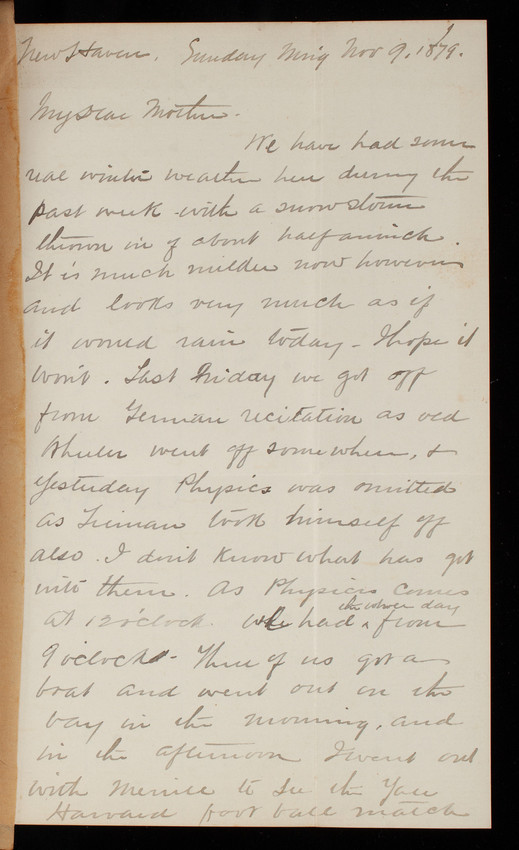 New Haven. Sunday Mrn'g Nov 9. 1879.
1
My Dear Mother.
We have had some
real winter weather here during the
past week with a snow storm
thrown in of about half an inch.
It is much milder now however
and looks very much as if
it would rain today - I hope it
won't. Last Friday we got off
from German recitation as old
Wheeler went off somewhere, &
yesterday Physics was omitted
as Lyman took himself off
also. I don't know what has got
into them. As Physics comes
at 12 o'clock. We had the whole day from
9 o'clock - Three of us got a
boat and went out on the
bay in the morning, and
in the afternoon I went out
with Merrill to see the Yale
Harvard foot ball match